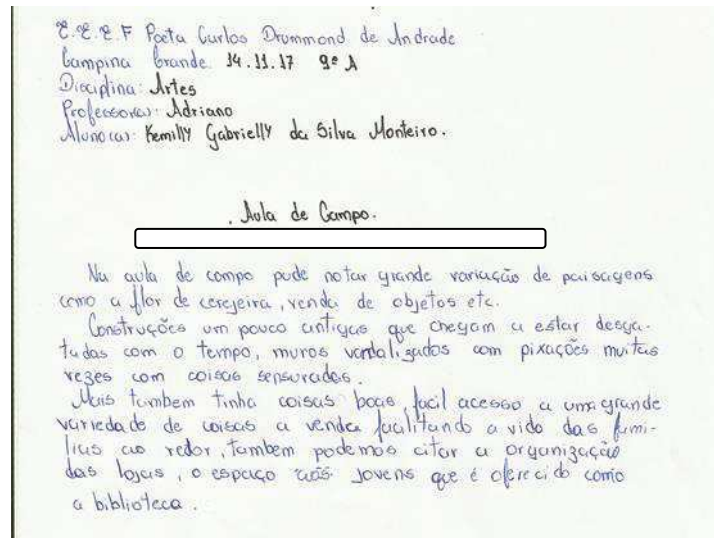 E.E.E.F Poeta Carlos Drummond de Andrade
Campina Grande 14.11.17 9º A
Disciplina: Artes
Professor(a): Adriano
Aluno(a): Kemilly Gabrielly da Silva Monteiro.
. Aula de Campo.
Na aula de campo pude notar grande variação de paisagens
como a flor de cerejeira, venda de objetos etc.
Construções um pouco antigas que chegam a estar desga-
tadas com o tempo, muros vandalizados com pixações muitas
vezes com coisas sensuradas.
Mais tambem tinha coisas boas, facil acesso a uma grande
variedade de coisas a venda facilitando a vida das fami-
lias ao redor, tambem podemos citar a organização
das lojas, o espaço aos jovens que é oferecido como
a biblioteca.